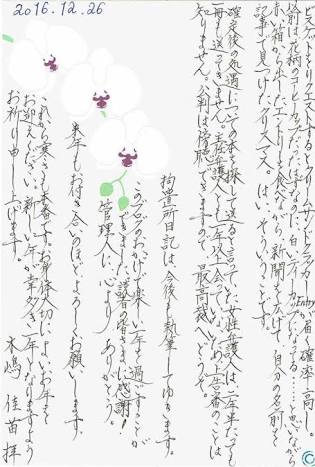 2016.12.26
ビスケットをリクエストするとクリームサンドクラッカー(Entry)が届く確率高し。
以前は花柄コーヒーカップだったはずなのに、白いマグカップになってる……と思いながら
赤い箱から出したエントリーを食べながら新聞を広げ、自分の名前を
記事で見つけたクリスマス。はい、そういうことです。
確定後の処遇についての本を探して送ると言ってた女性弁護人は一年半たっても
一冊も送ってきません。弁護人と一年以上会っていないため、上告審のことは
知りません。公判は傍聴できますので、最高裁へどうぞ。
拘置所日記は今後も執筆してゆきます。
このブログのおかげで楽しい一年を過ごすことが
できました。読者の皆さまに感謝!
管理人に心よりありがとう。
来年もお付き合いのほどよろしくお願いします。
これから寒さも本番です。お身体大切に、よいお年を
お迎えください。新しい年が幸多き一年となりますよう
お祈り申し上げます。
木嶋 佳苗 拝
©